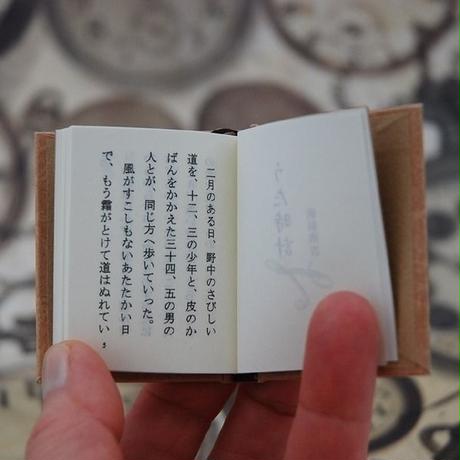 うた時計
新美南吉
二月のある日、野中のさびしい
道を、十二、三の少年と、皮のか
ばんをかかえた三十四、五の男の
人とが、同じ方へ歩いていった。
風がすこしもないあたたかい日
で、もう霜がとけて道はぬれてい
5